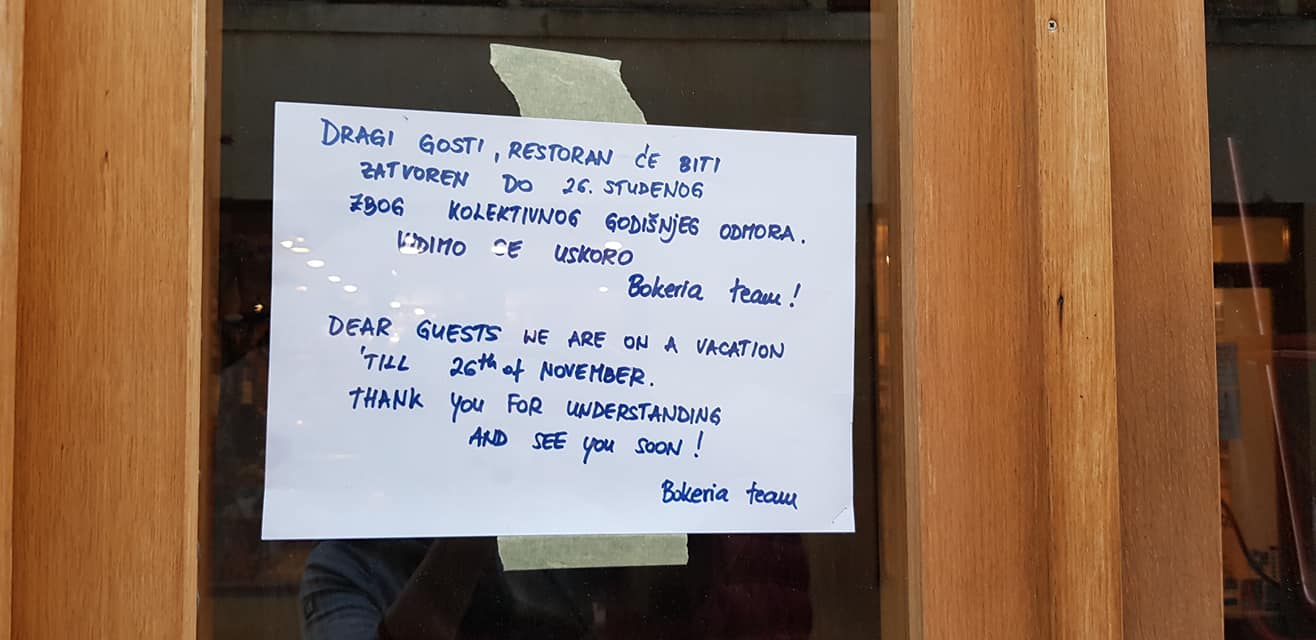 DRAGI GOSTI, RESTORAN ĆE BITI
ZATVOREN DO 26. STUDENOG
ZBOG KOLEKTIVNOG GODIŠNJEG ODMORA.
VIDIMO CE USKORO
Bokeria team!
DEAR GUESTS WE ARE ON A VACATION
'TILL 26th of NOVEMBER.
THANK YOU FOR UNDERSTANDING
AND SEE YOU SOON!
Bokeria team